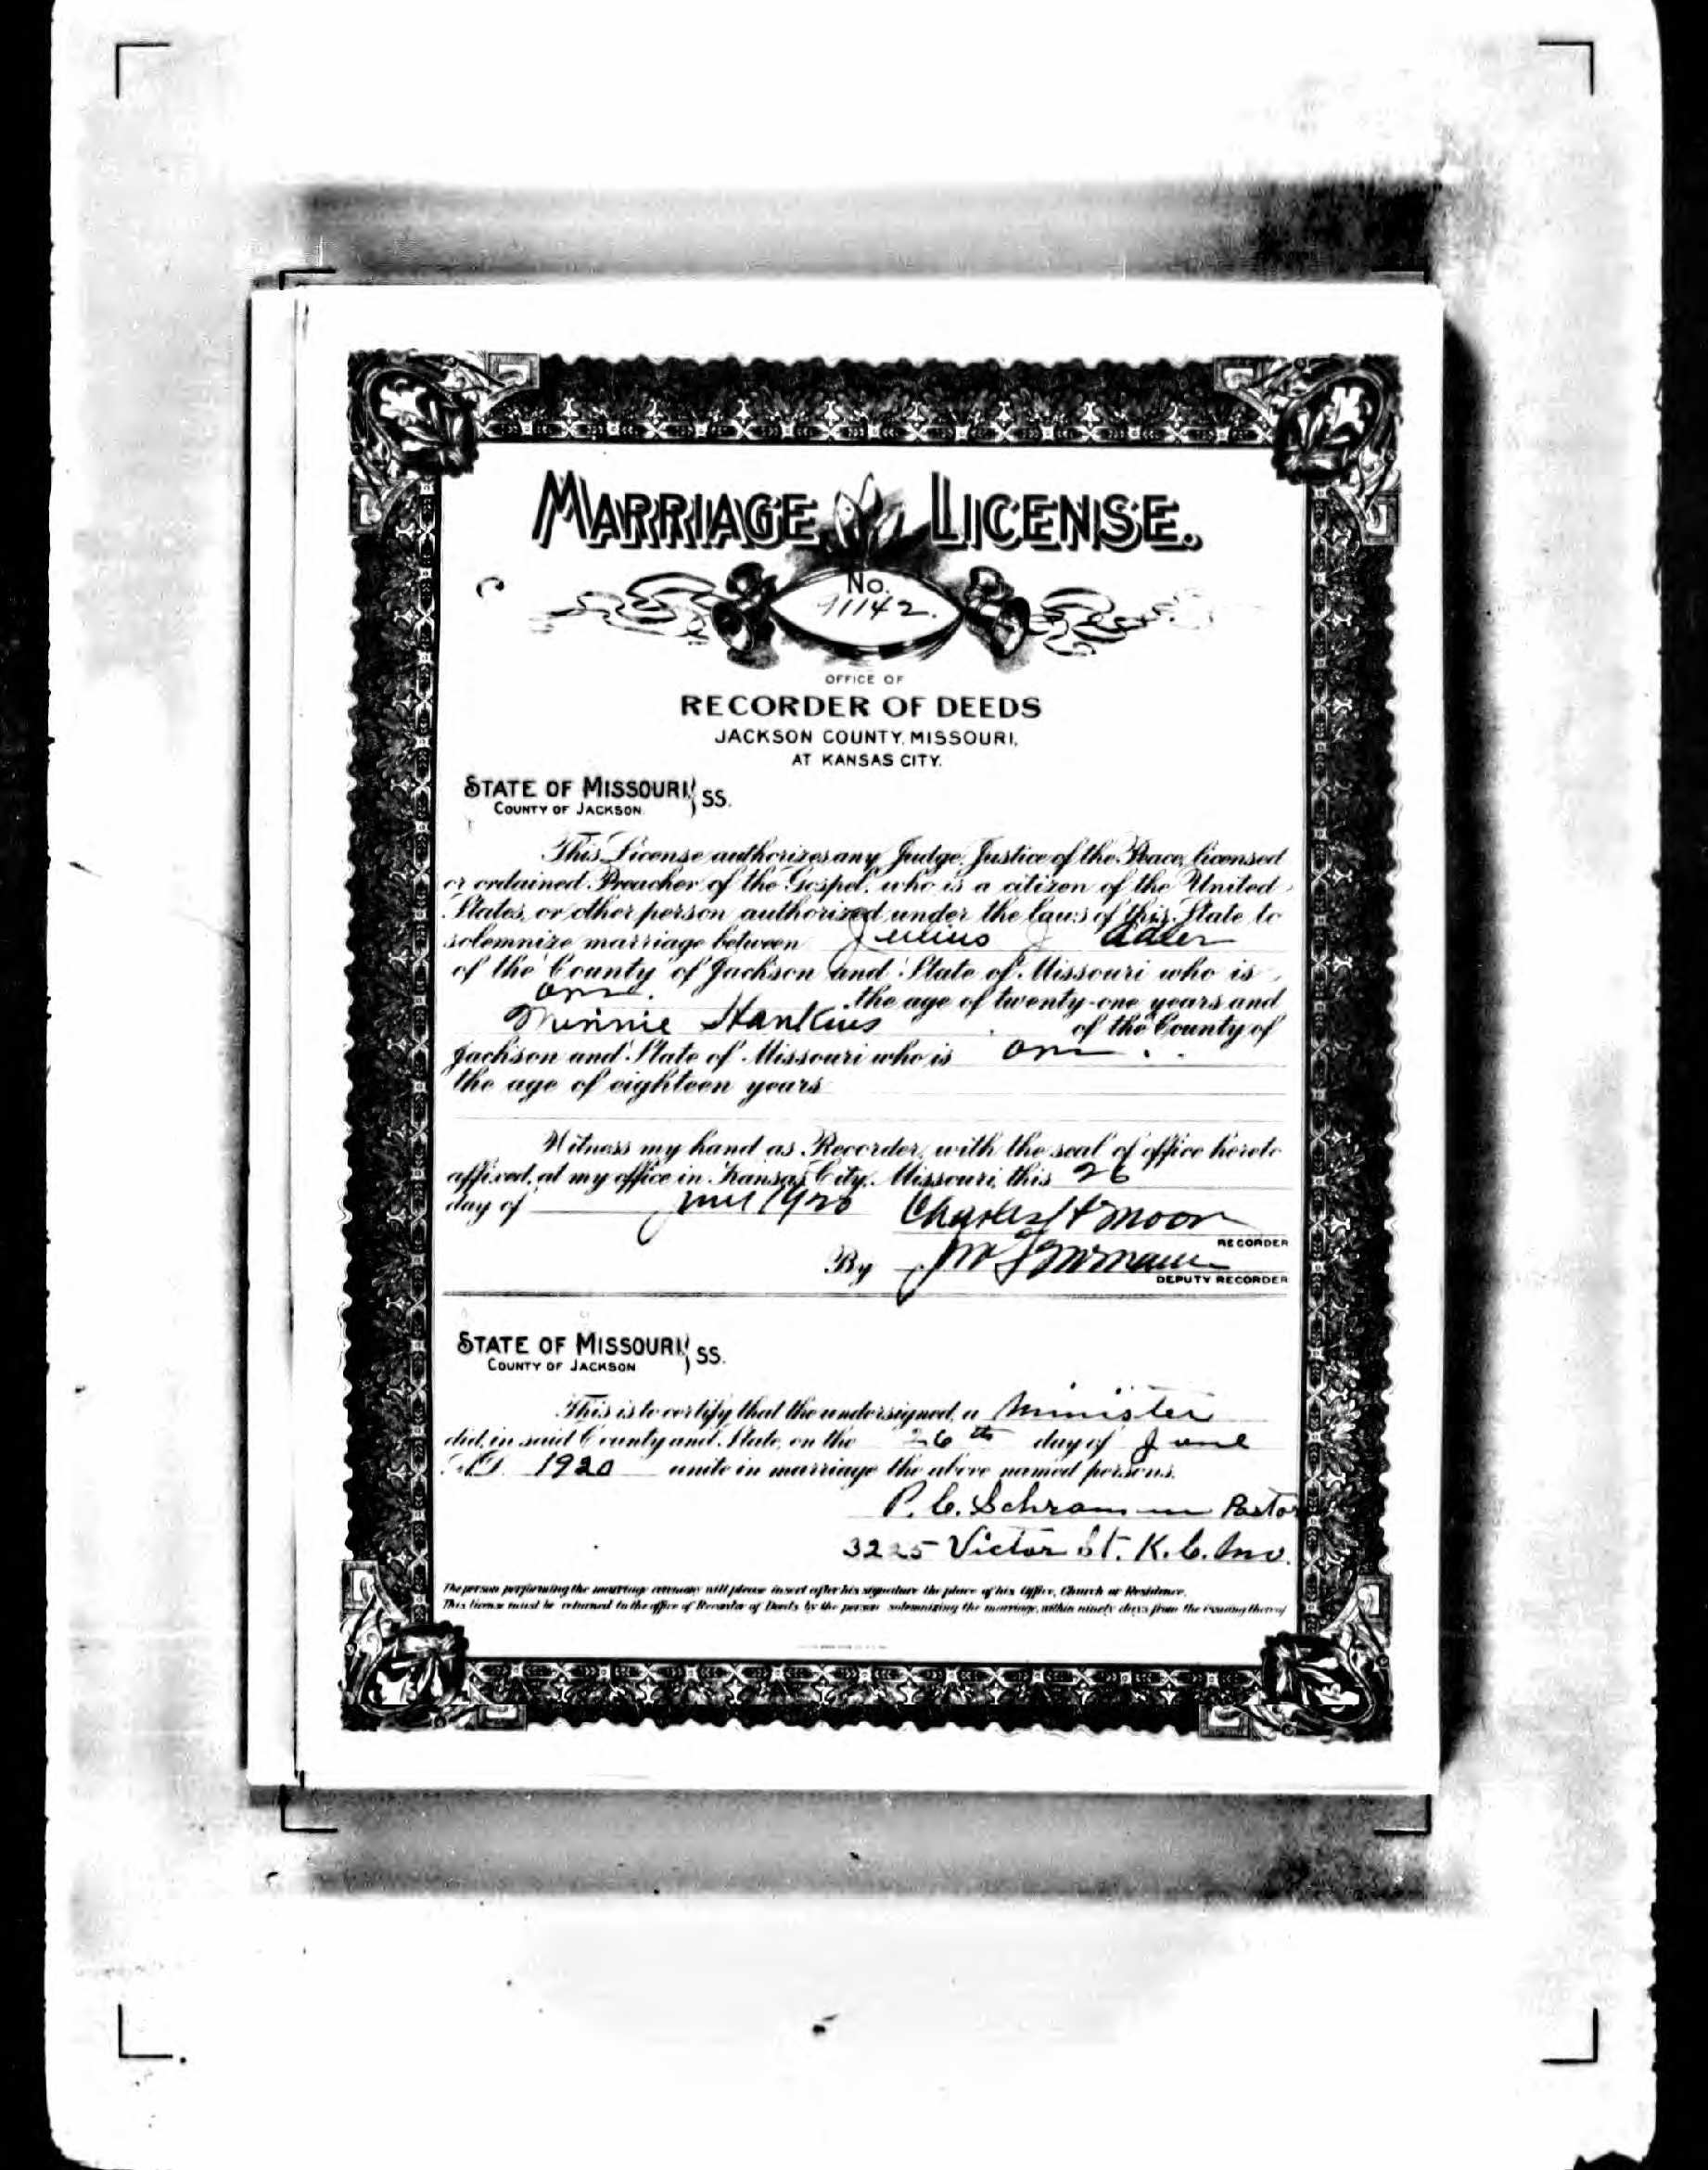 MARRIAGE LICENSE.
No.
11142.
OFFICE OF
RECORDER OF DEEDS
JACKSON COUNTY, MISSOURI,
AT KANSAS CITY.
STATE OF MISSOURI, } SS.
COUNTY OF JACKSON
This License authorizes any Judge, Justice of the Peace, licensed
or ordained Preacher of the Gospel, who is a citizen of the United
States, or other person authorized under the laws of this State to
solemnize marriage between Julius J Adler
of the County of Jackson and State of Missouri who is
over the age of twenty-one years and
Minnie Hankins of the County of
Jackson and State of Missouri who is over
the age of eighteen years
Witness my hand as Recorder, with the seal of office hereto
affixed, at my office in Kansas City, Missouri, this 26
day of June 1920 Charles H Moor
RECORDER
By
DEPUTY RECORDER
STATE OF MISSOURI, } SS.
COUNTY OF JACKSON
This is to certify that the undersigned, a Minister
did, in said County and State, on the 26th day of June
A.D. 1920 unite in marriage the above named persons.
P. C. Schramm Pastor
3225 Victor St. K. C. Mo.
The person performing the marriage ceremony will please insert after his signature the place of his Office, Church or Residence.
This license must be returned to the office of Recorder of Deeds by the person solemnizing the marriage, within ninety days from the issuing thereof